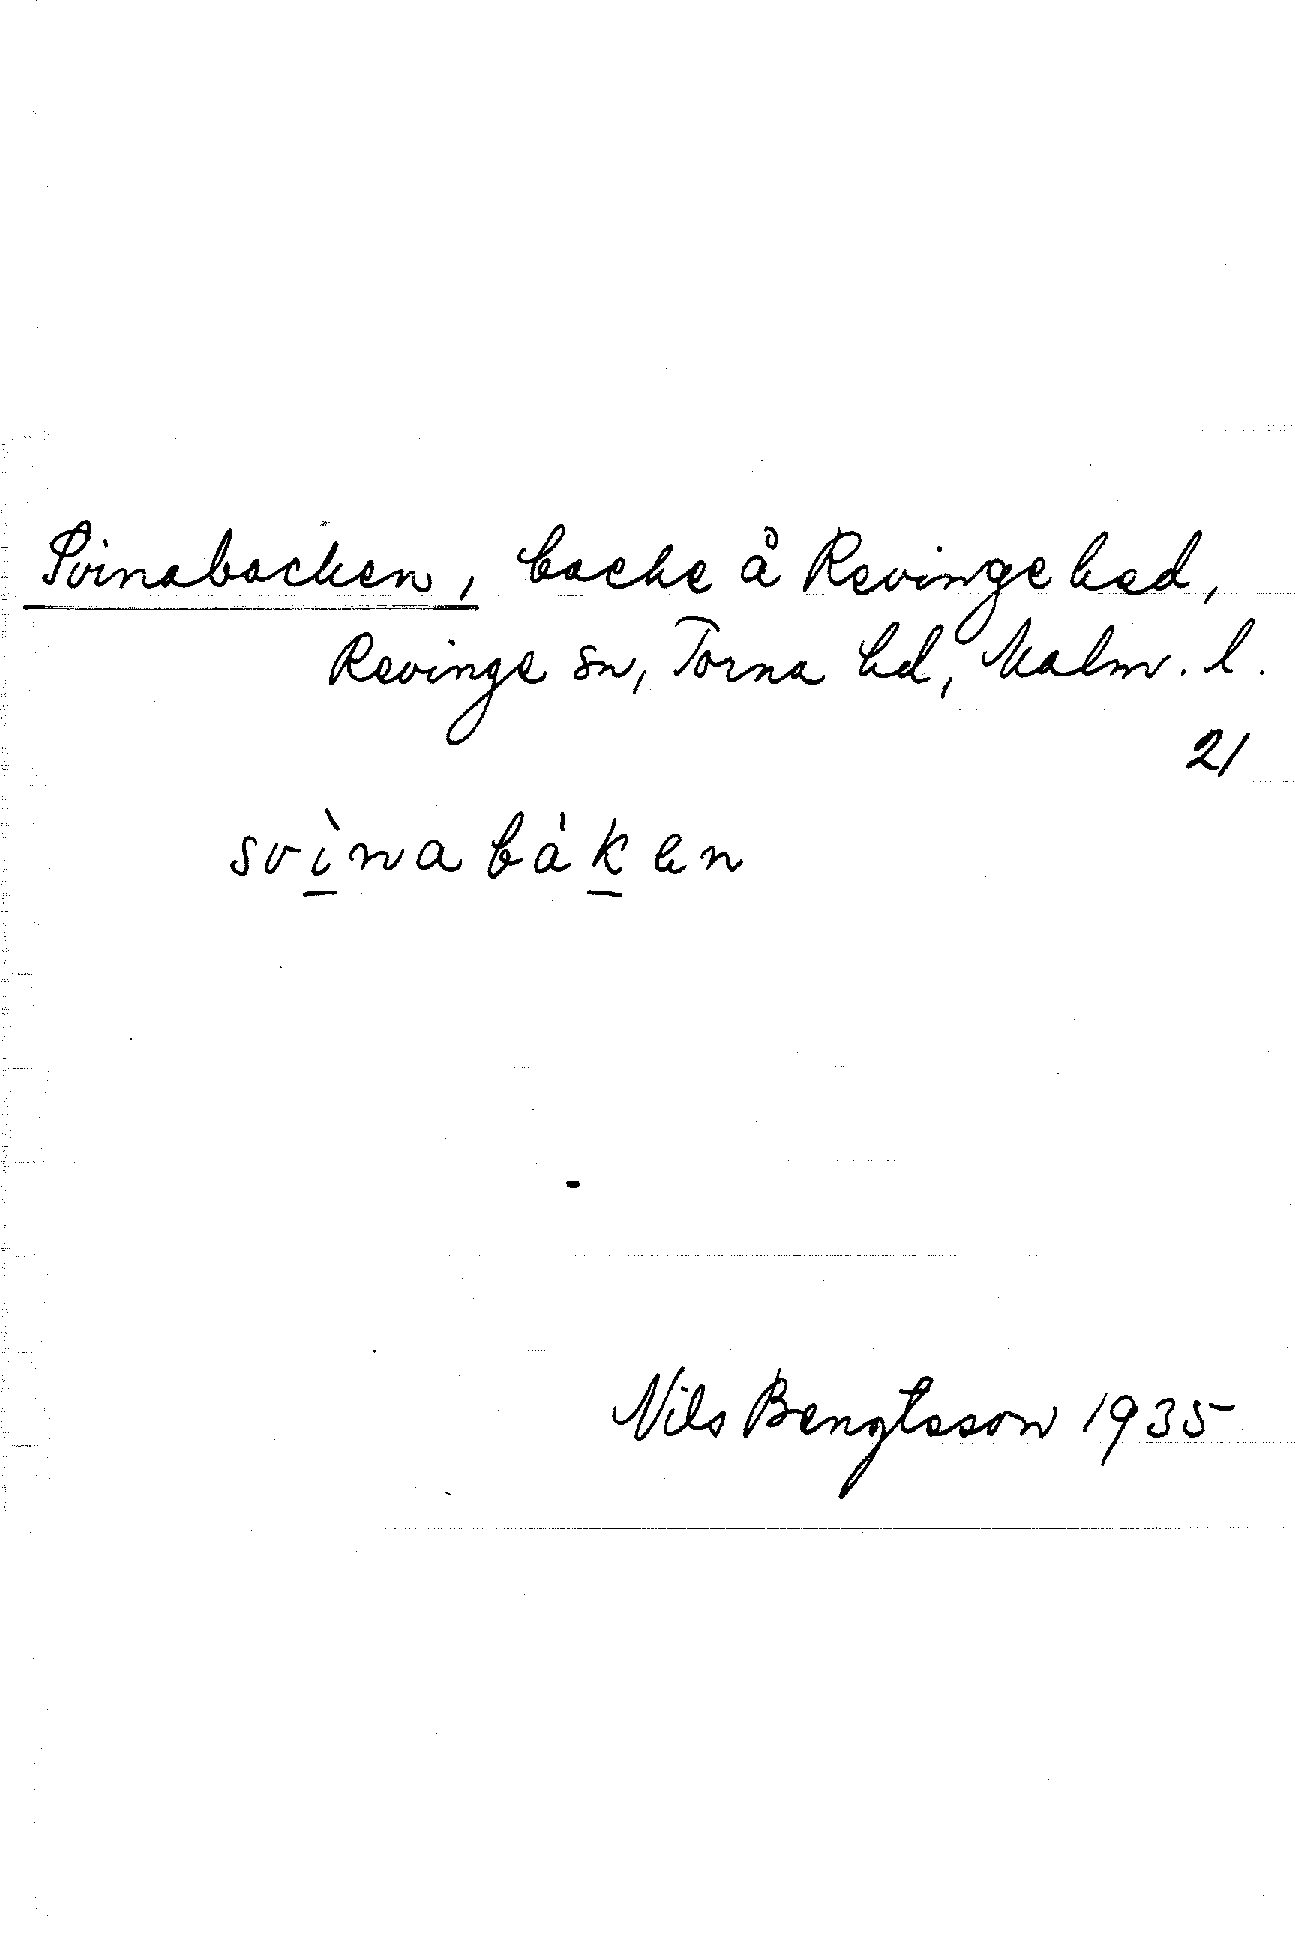 Svinabacken, backe å Revingehed,
Revinge sn, Torna hd, Malm. l.
21
svìnabákен
Nils Bengtsson 1935